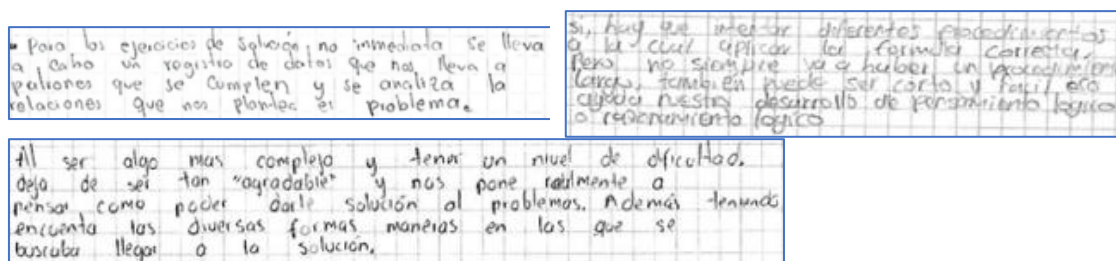 - Para los ejercicios de solución no immediata se lleva
a cabo un registro de datos que nos lleva a
patrones que se cumplen y se analiza la
relaciones que nos plantea el problema.
si, hay que intentar diferentes procedimientos
a la cual aplicar la formula correcta,
Pero no siempre va a haber un procedimiento
largo, también puede ser corto y facil eso
ayuda nuestro desarrollo de pensamiento lógico
o razonamiento lógico
Al ser algo mas complejo y tener un nivel de dificultad.
deja de ser tan "agradable" y nos pone realmente a
pensar como poder darle solución al problemas. Además teniendo
encuenta las diversas formas maneras en las que se
buscaba llegar a la solución.